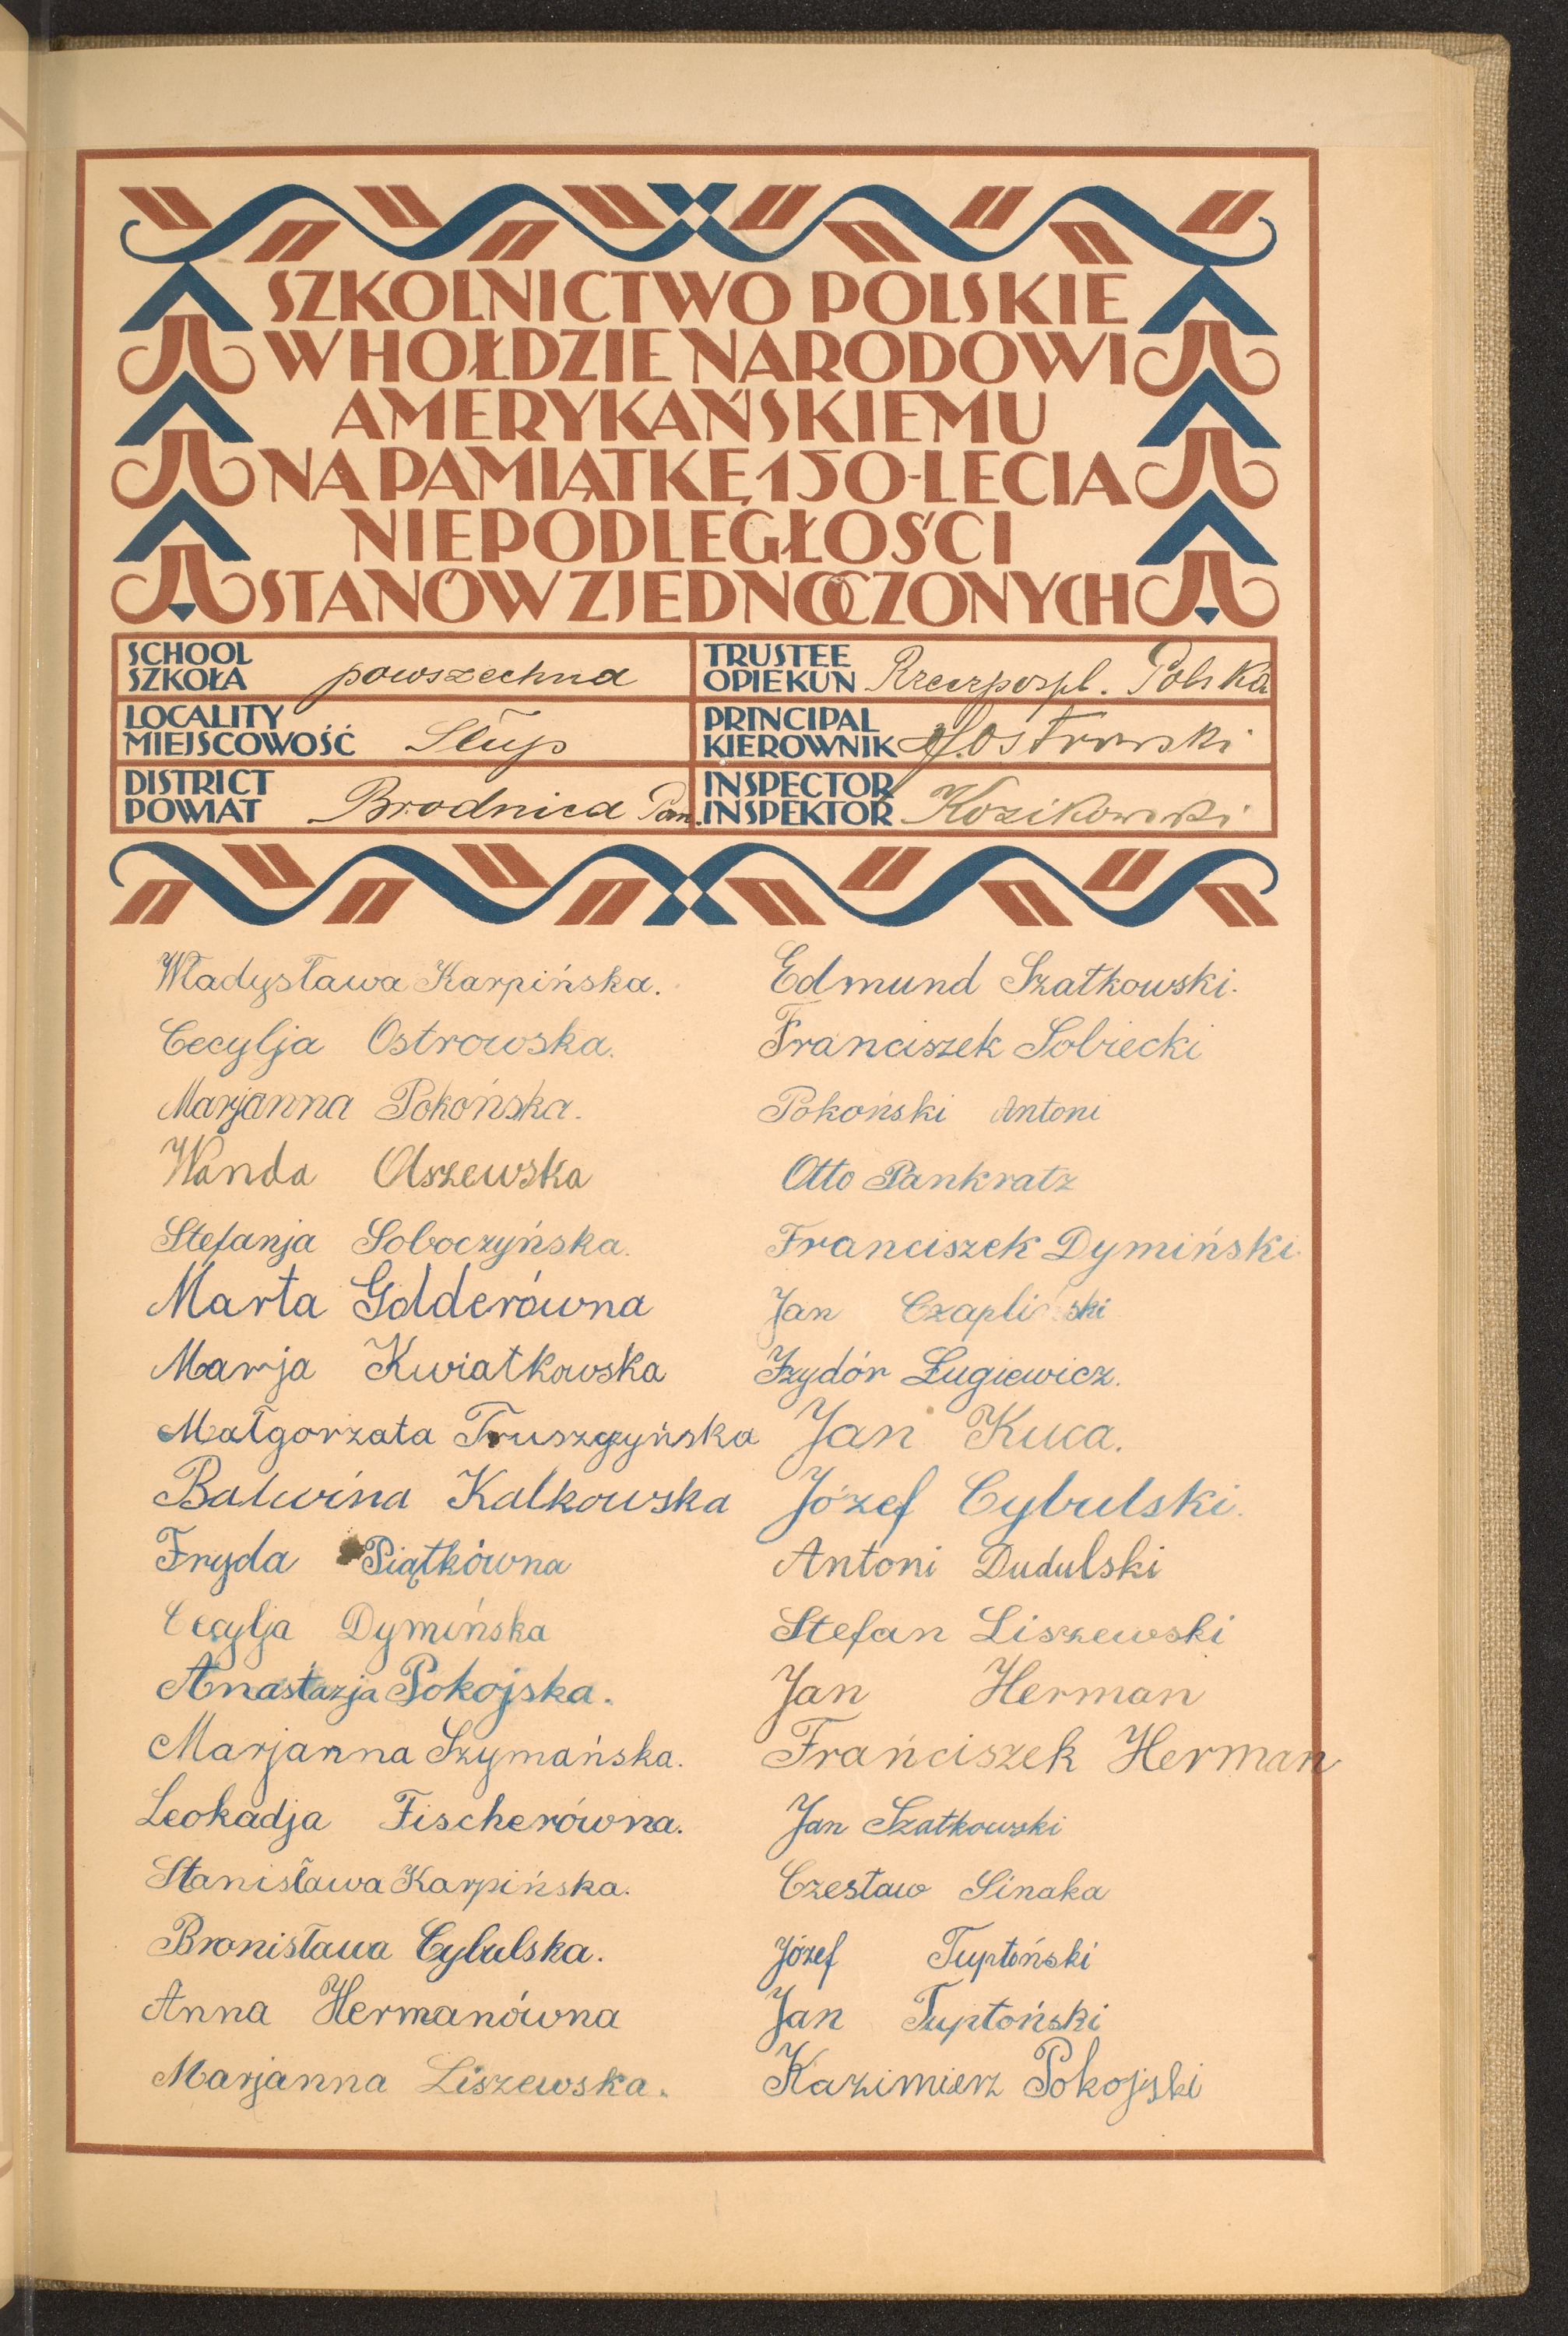 SZKOLNICTWO POLSKIE
W HOŁDZIE NARODOWI
AMERYKAŃSKIEMU
NA PAMIĄTKĘ 150-LECIA
NIEPODLEGŁOŚCI
STANÓW ZJEDNOCZONYCH
SCHOOL
SZKOŁA powszechna
TRUSTEE
OPIEKUN Rzeczpospl. Polska
LOCALITY
MIEJSCOWOŚĆ Słup
PRINCIPAL
KIEROWNIK Ostrowski
DISTRICT
POWIAT Brodnica Pom.
INSPECTOR
INSPEKTOR Kozikowski
Władysława Karpińska.
Cecylja Ostrowska.
Marjanna Pokońska.
Wanda Olszewska
Stefanja Soboczyńska.
Marta Golderówna
Marja Kwiatkowska
Małgorzata Truszczyńska
Balwina Kalkowska
Fryda Piątkówna
Cecylja Dymińska
Anastazja Pokojska.
Marjanna Szymańska.
Leokadja Fischerówna.
Stanisława Karpińska.
Bronisława Cybulska.
Anna Hermanówna
Marjanna Liszewska.
Edmund Szatkowski.
Franciszek Sobiecki
Pokoński Antoni
Otto Pankratz
Franciszek Dymiński
Jan Czapliński
Izydór Ługiewicz.
Jan Kuca.
Józef Cybulski.
Antoni Dudulski
Stefan Liszewski
Jan Herman
Frańciszek Herman
Jan Szatkowski
Czesław Sinaka
Józef Tuptoński
Jan Tuptoński
Kazimierz Pokojski